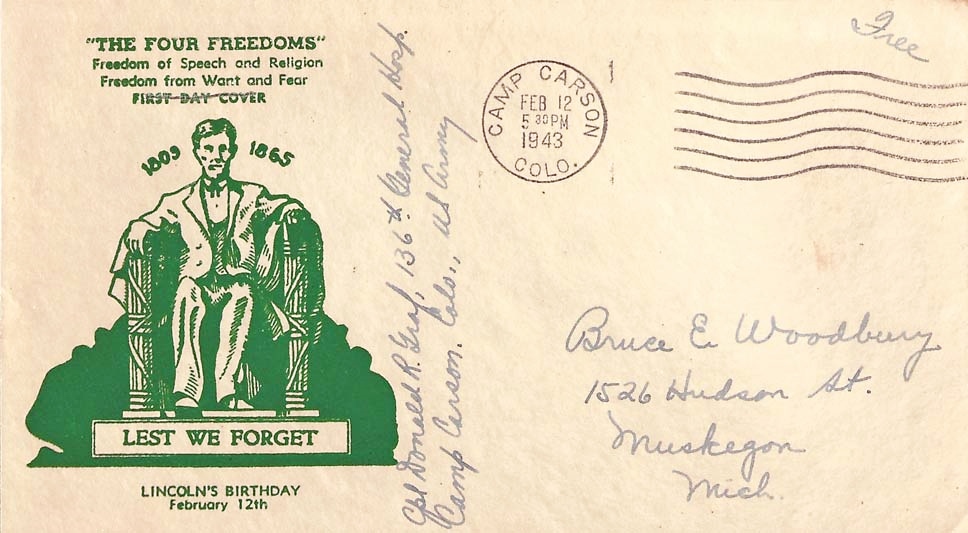 "THE FOUR FREEDOMS"
Freedom of Speech and Religion
Freedom from Want and Fear
FIRST DAY COVER
1809 1865
LEST WE FORGET
LINCOLN'S BIRTHDAY
February 12th
Cpl Donald R Graf, 136th General Hosp.
Camp Carson. Colo., US Army
CAMP CARSON
FEB 12
5 30 PM
1943
COLO.
1
Free
Bruce E Woodbury
1526 Hudson St.
Muskegon
Mich.